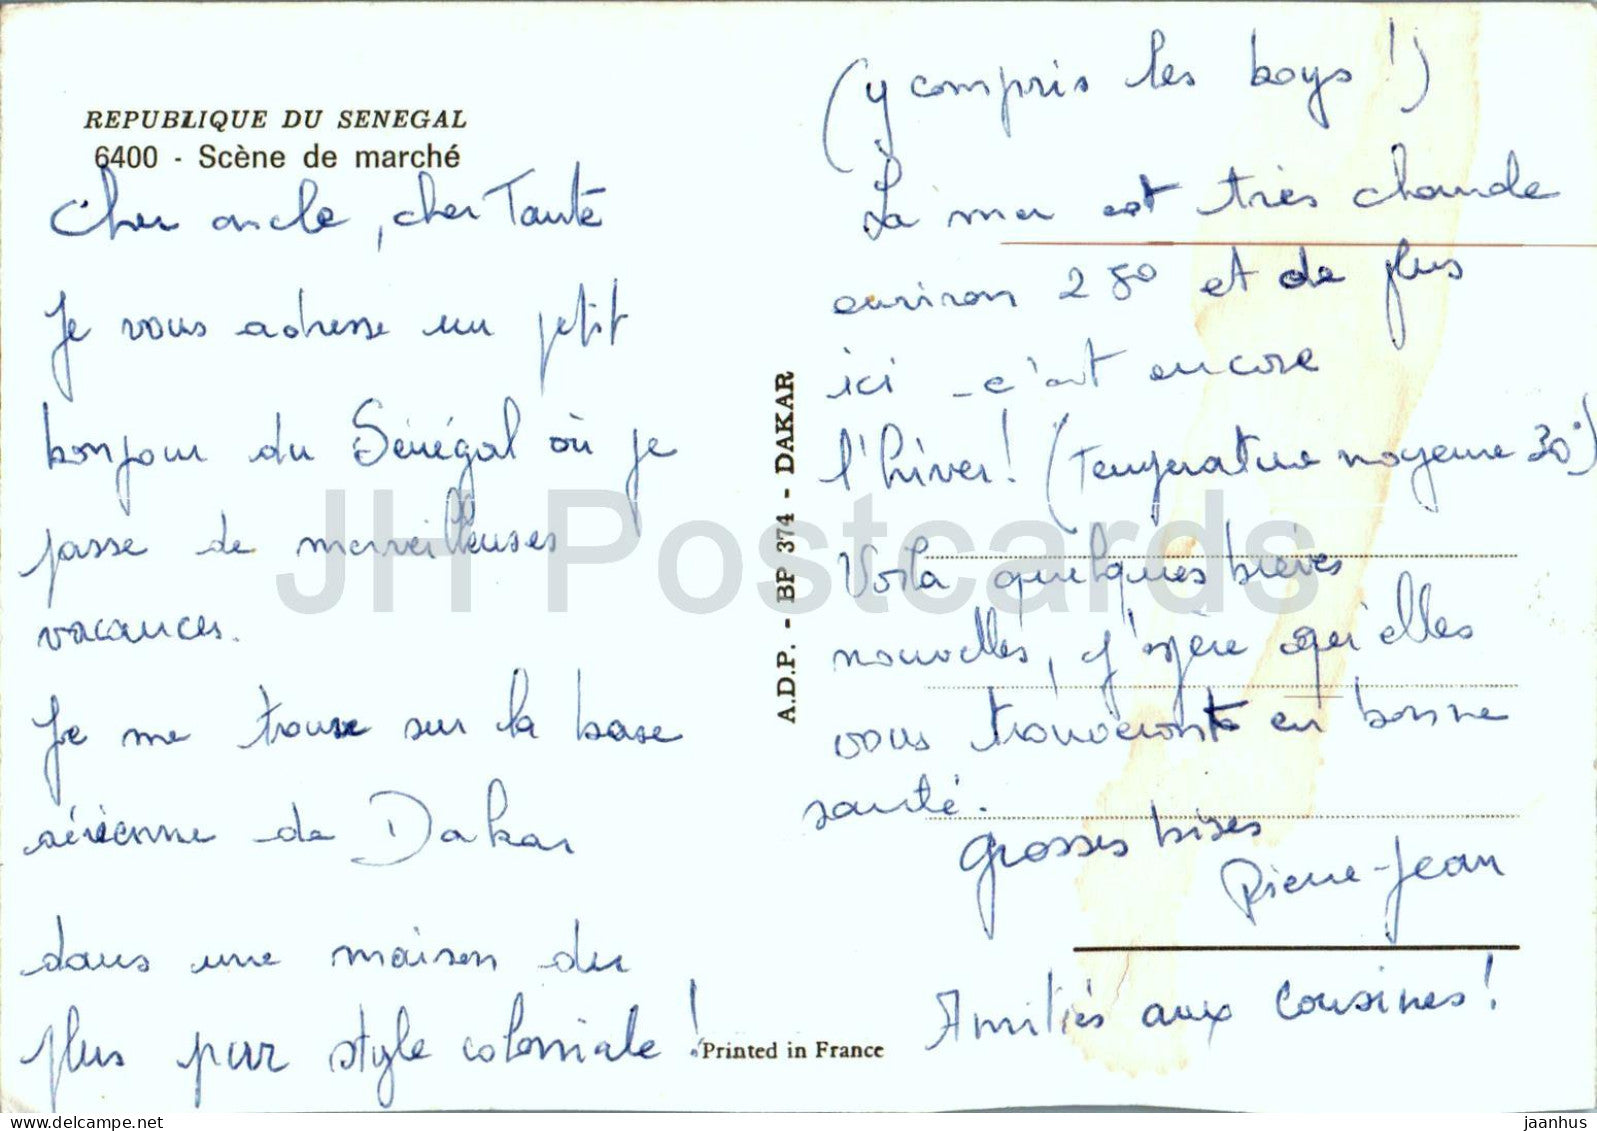 REPUBLIQUE DU SENEGAL
6400 - Scène de marché
Cher oncle, cher Tante
Je vous adresse un petit
bonjour du Sénégal où je
passe de merveilleuses
vacances.
Je me trouve sur la base
aérienne de Dakar
dans une maison du
plus pur style coloniale !
(y compris les boys !)
La mer est très chaude
environ 28° et de plus
ici c'est encore
l'hiver ! (Température moyenne 30°)
Voila quelques brèves
nouvelles, j'espère qu'elles
vous trouveront en bonne
santé.
Grosses bises
Pierre-Jean
Amitiés aux cousines !
A.D.P. - BP 374 - DAKAR
Printed in France
JH Postcards
hipostcard.com
jaanhus